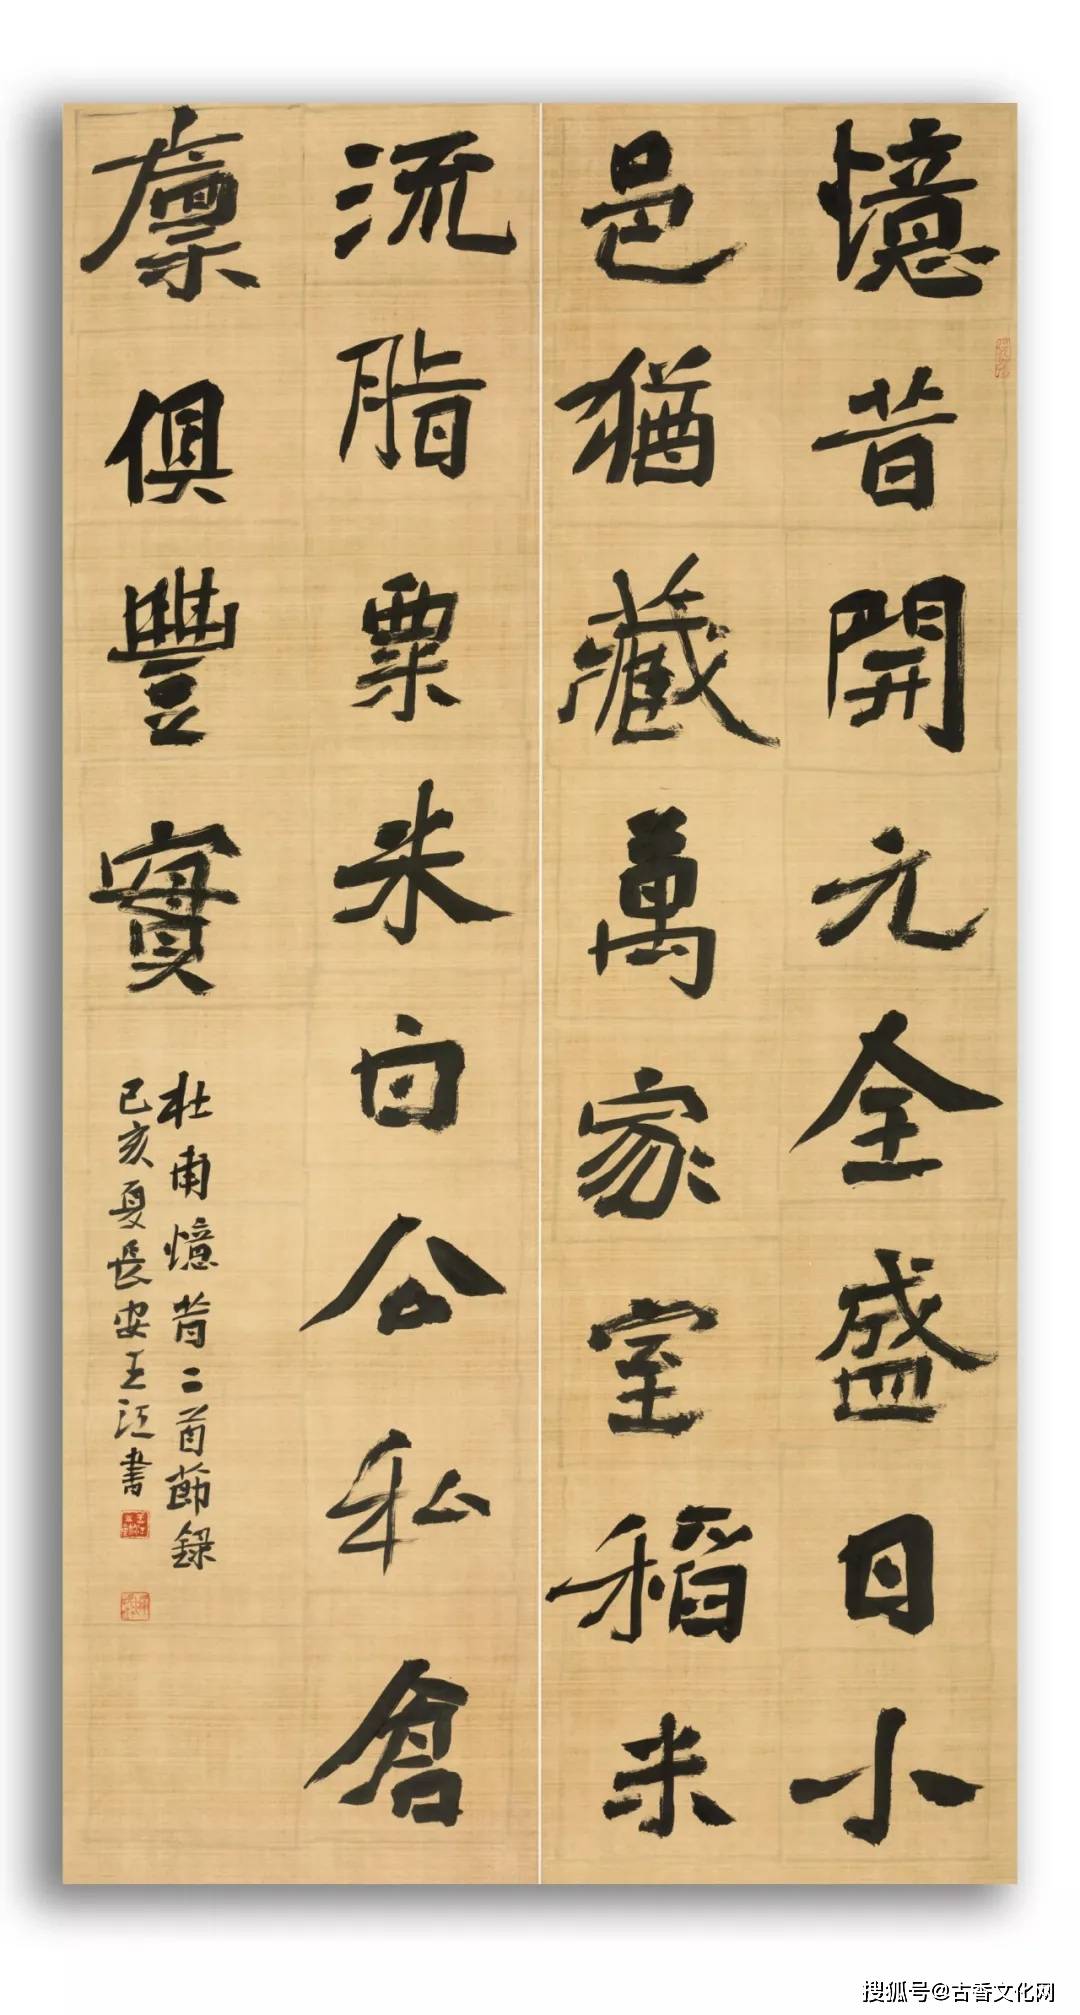 憶昔開元全盛日小
邑猶藏萬家室稻米
流脂粟米白公私倉
廩俱豐實
杜甫憶昔二首節錄
己亥夏長安王江書
搜狐号@古香文化网